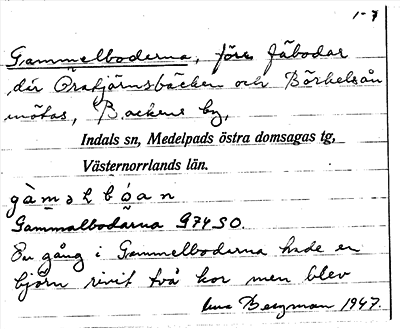 1-7
Gammelboderna, förr fäbodar
där Öratjärnsbäcken och Börkelsån
mötas, Backens by,
Indals sn, Medelpads östra domsagas tg,
Västernorrlands län.
Gammalbodarna G74SO.
En gång i Gammelboderna hade en
björn rivit två kor men blev
Bergman 1947.